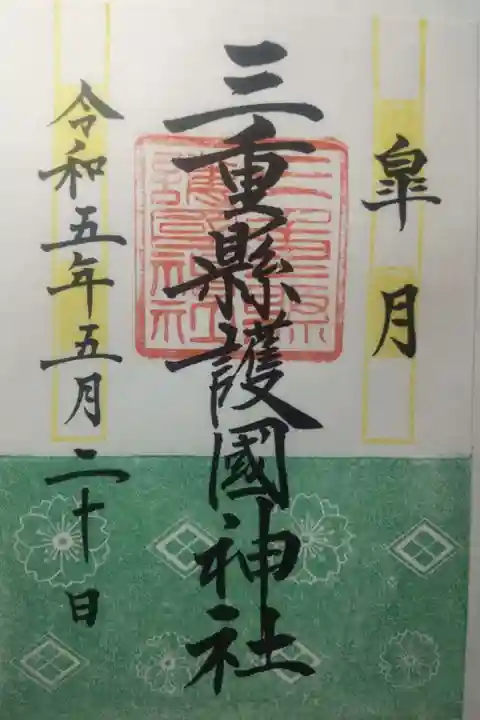 皐月
三重縣護國神社
三重県護国神社
令和五年五月二十日